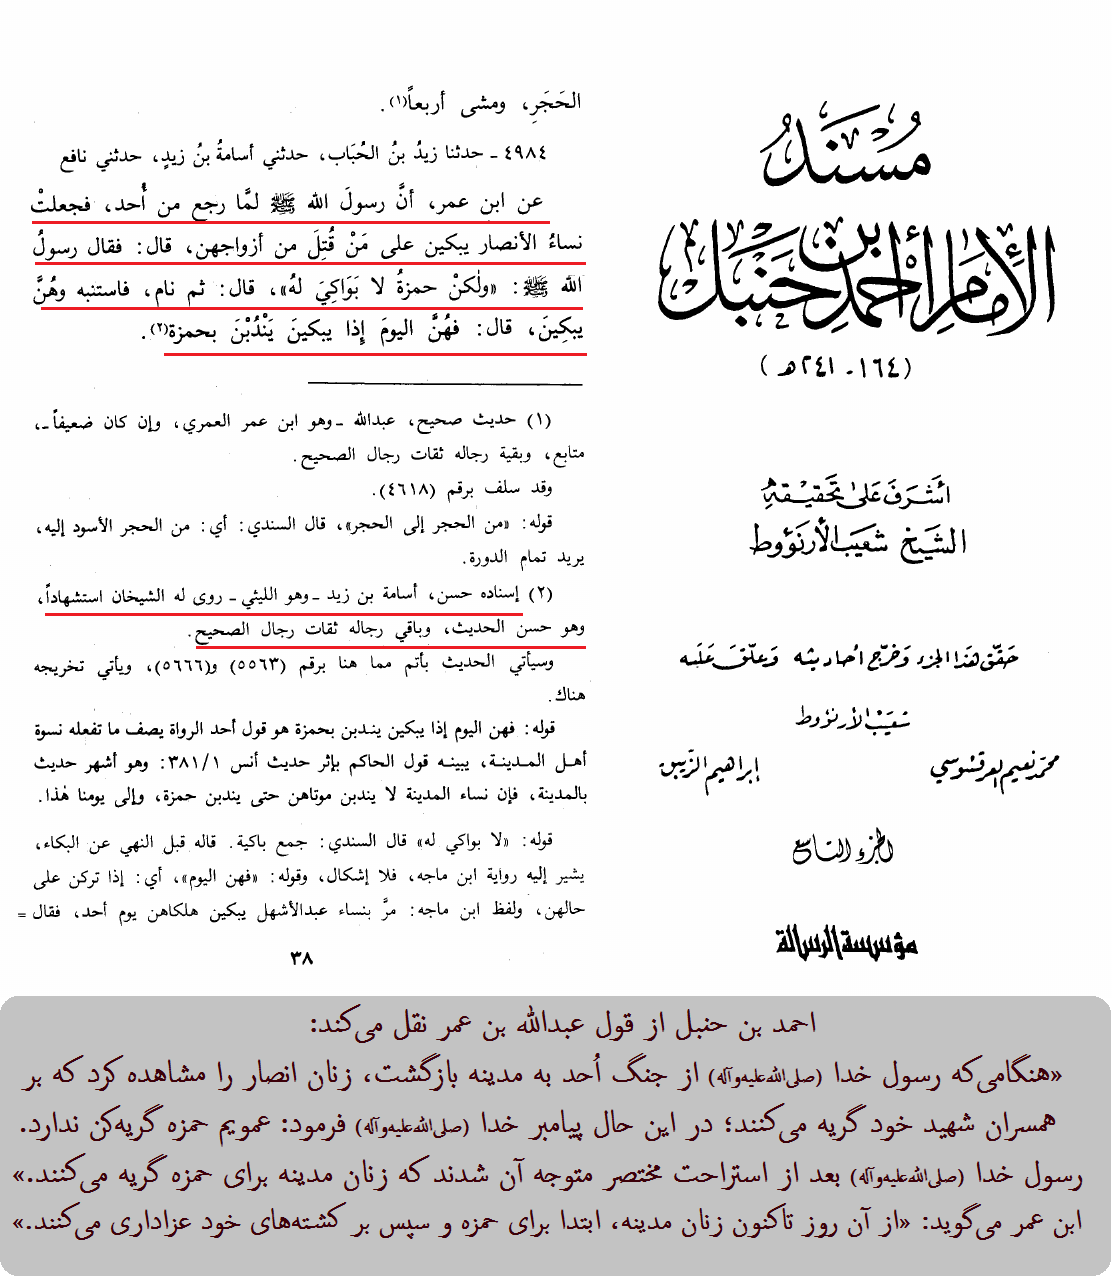 مُسْنَدُ
الإِمَامِ أَحْمَدَ بْنِ حَنْبَل
(١٦٤ - ٢٤١ هـ)
أشْرَفَ عَلى تحقيقِهِ
الشَّيخ شعَيب الأرنؤوط
حَقّق هَذا الجزء وَخرّج أحَاديثه وَعلّق عَليه
شعَيْب الأرنؤوط
محمّد نعيم العرقسُوسي إبراهيم الزّيبق
الجزء التاسع
مؤسسة الرسالة
الحَجَرِ، ومشى أربعاً(١).
٤٩٨٤ - حدثنا زيدُ بنُ الحُبَاب، حدثني أسامةُ بنُ زيدٍ، حدثني نافع
عن ابنِ عمر، أنَّ رسولَ الله ﷺ لمَّا رجع من أُحد، فجعلتْ
نساءُ الأنصار يبكين على مَنْ قُتِلَ من أزواجهن، قال: فقال رسولُ
الله ﷺ: «ولٰكنْ حمزةُ لا بَوَاكِيَ لهُ»، قال: ثم نام، فاستنبه وهُنَّ
يبكِينَ، قال: فهُنَّ اليومَ إِذا يبكينَ يَنْدُبْنَ بحمزة(٢).
(١) حديث صحيح، عبدالله - وهو ابن عمر العمري، وإن كان ضعيفاً -،
متابع، وبقية رجاله ثقات رجال الصحيح.
وقد سلف برقم (٤٦١٨).
قوله: «من الحجر إلى الحجر»، قال السندي: أي: من الحجر الأسود إليه،
يريد تمام الدورة.
(٢) إسناده حسن، أسامة بن زيد - وهو الليثي - روى له الشيخان استشهاداً،
وهو حسن الحديث، وباقي رجاله ثقات رجال الصحيح.
وسيأتي الحديث بأتم مما هنا برقم (٥٥٦٣) و(٥٦٦٦)، ويأتي تخريجه
هناك.
قوله: فهن اليوم إذا يبكين يندبن بحمزة هو قول أحد الرواة يصف ما تفعله نسوة
أهل المدينة، يبينه قول الحاكم بإثر حديث أنس ٣٨١/١: وهو أشهر حديث
بالمدينة، فإن نساء المدينة لا يندبن موتاهن حتى يندبن حمزة، وإلى يومنا هٰذا.
قوله: «لا بواكي له» قال السندي: جمع باكية. قاله قبل النهي عن البكاء،
يشير إليه رواية ابن ماجه، فلا إشكال، وقوله: «فهن اليوم»، أي: إذا تركن على
حالهن، ولفظ ابن ماجه: مرَّ بنساء عبدالأشهل يبكين هلكاهن يوم أحد، فقال =
٣٨
احمد بن حنبل از قول عبدالله بن عمر نقل می‌کند:
«هنگامی‌که رسول خدا (صلی‌الله‌علیه‌وآله) از جنگ اُحد به مدینه بازگشت، زنان انصار را مشاهده کرد که بر
همسران شهید خود گریه می‌کنند؛ در این حال پیامبر خدا (صلی‌الله‌علیه‌وآله) فرمود: عمویم حمزه گریه‌کن ندارد.
رسول خدا (صلی‌الله‌علیه‌وآله) بعد از استراحت مختصر متوجه آن شدند که زنان مدینه برای حمزه گریه می‌کنند.»
ابن عمر می‌گوید: «از آن روز تاکنون زنان مدینه، ابتدا برای حمزه و سپس بر کشته‌های خود عزاداری می‌کنند.»